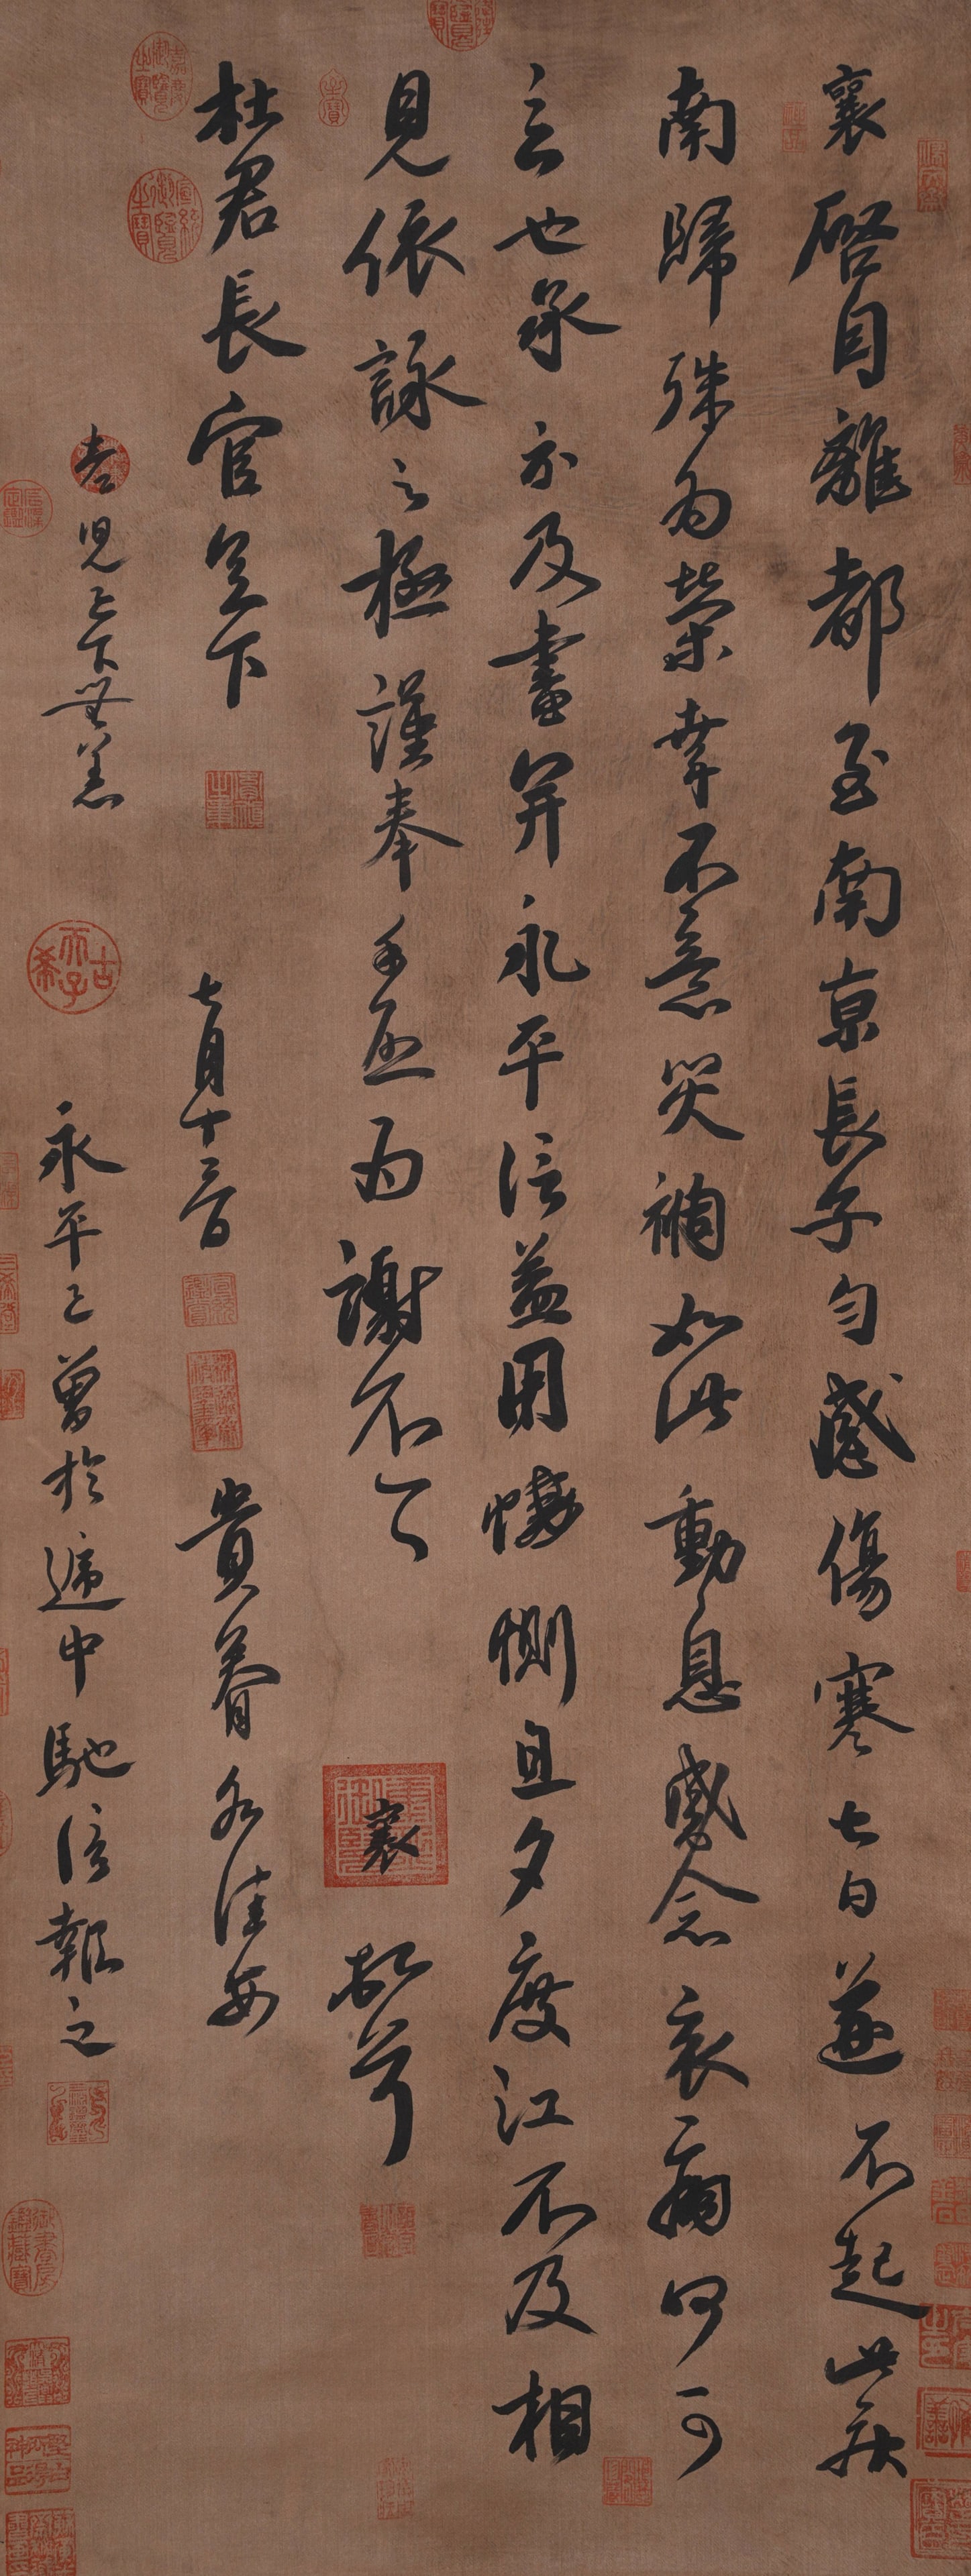 襄啓自離都至南京長子勻感傷寒七日遂不起此疾
南歸殊為榮幸不意災禍如此動息感念哀痛何可
言也承示及書并永平信益用悽惻旦夕度江不及相
見依詠之極謹奉手啓為謝不一一 襄 頓首
杜君長官足下 七月十三日 貴眷各佳安
老兒已下無恙
永平已曾於遞中馳信報之
古希天子